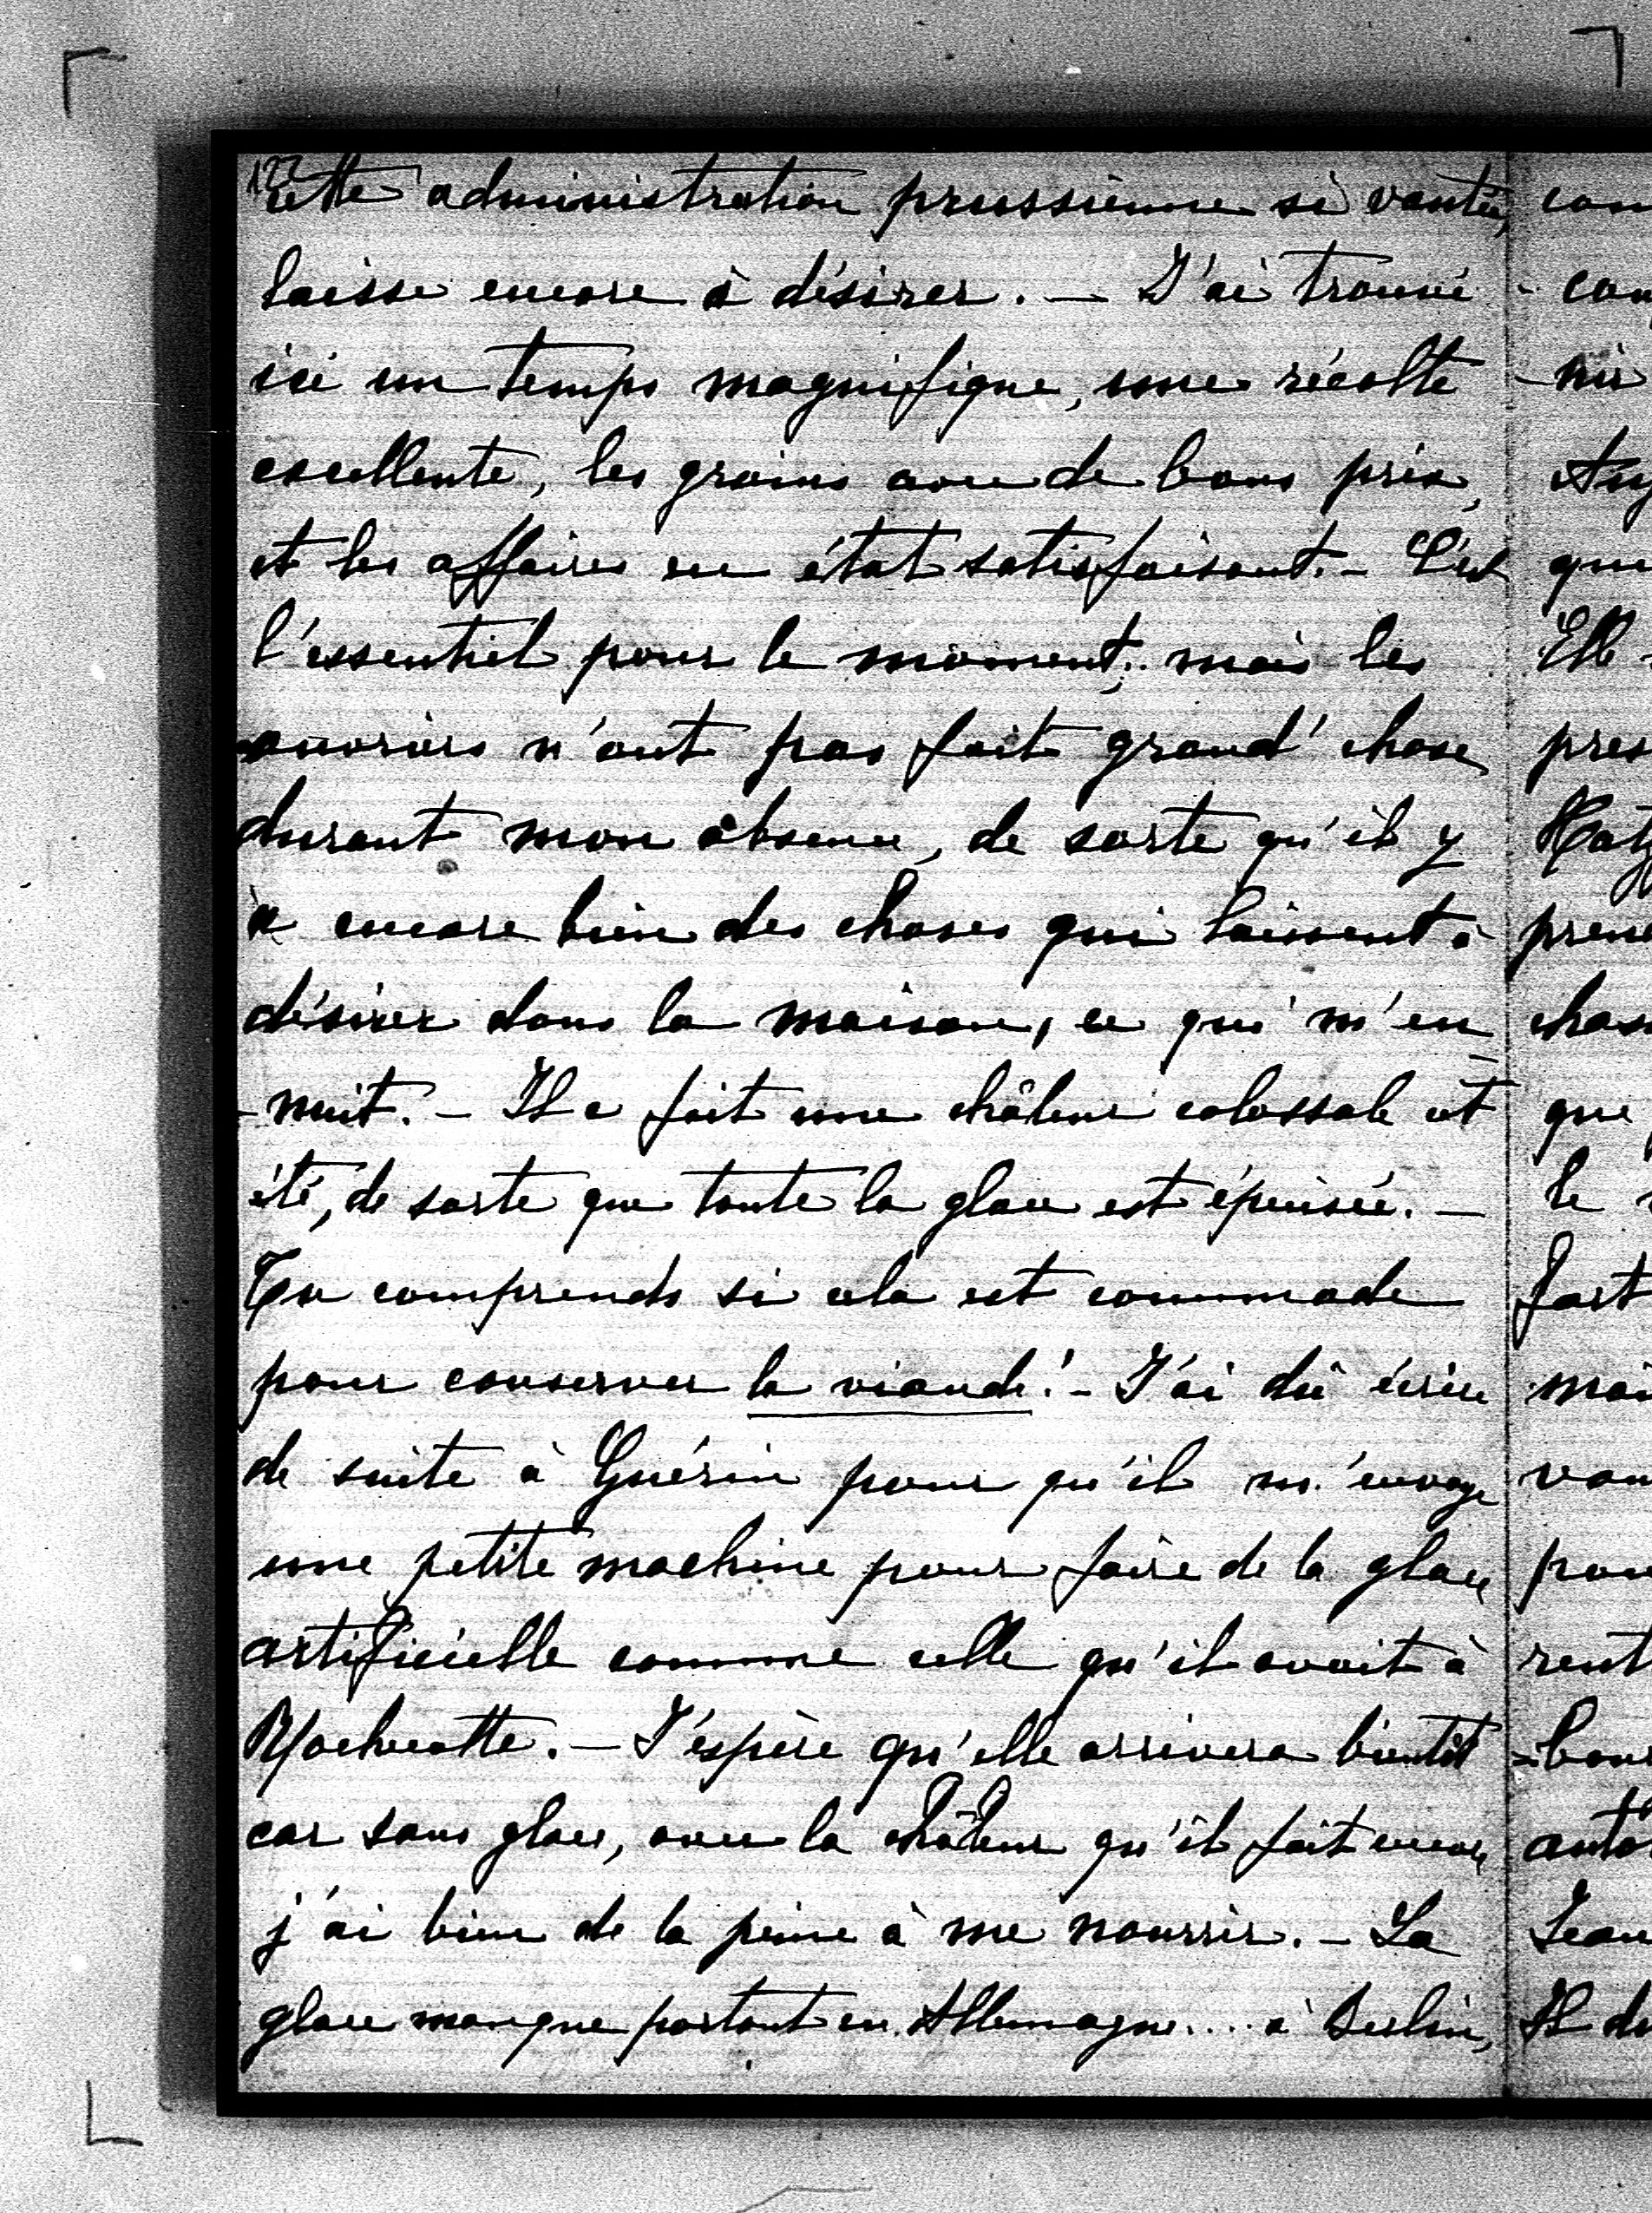 cette administration prussienne si vantée,
laisse encore à désirer. — J'ai trouvé
ici un temps magnifique, une récolte
excellente, les grains avec de bons prix,
et les affaires en état satisfaisant. — C'est
l'essentiel pour le moment; mais les
ouvriers n'ont pas fait grand'chose
durant mon absence, de sorte qu'il y
a encore bien des choses qui laissent à
désirer dans la maison, ce qui m'en
-nuit. — Il a fait une châleur colossale cet
été, de sorte que toute la glace est épuisée. —
Tu comprends si cela est commode
pour conserver la viande! — J'ai dû écrire
de suite à Guérin pour qu'il m'envoye
une petite machine pour faire de la glace
artificielle comme celle qu'il avait à
. — J'espère qu'elle arrivera bientôt
car sans glace, avec la châleur qu'il fait encore,
j'ai bien de la peine à me nourrir. — La
glace manque partout en Allemagne.... à Berlin,